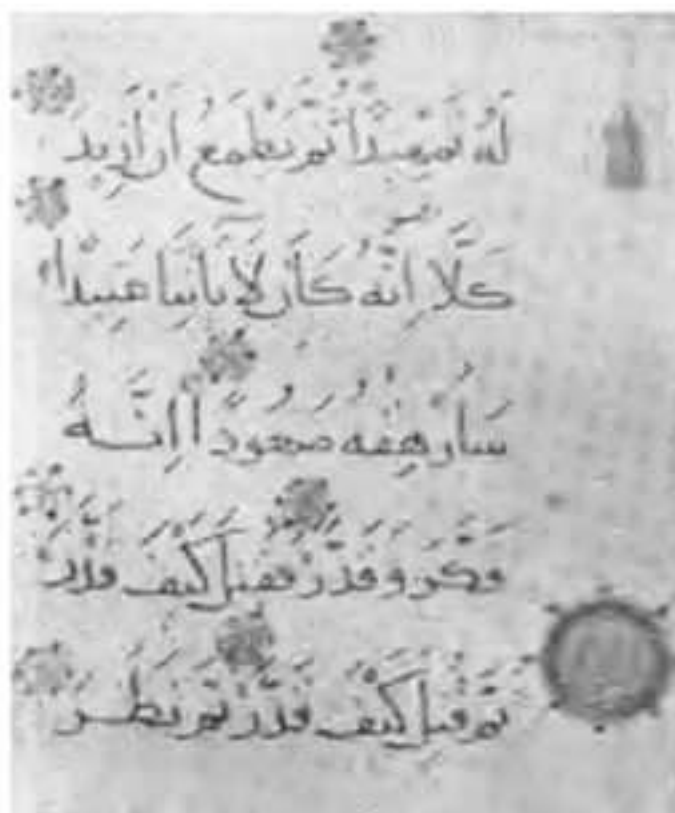 لَهُ تَمْهِيدًا ثُمَّ يَطْمَعُ أَنْ أَزِيدَ
كَلَّا إِنَّهُ كَانَ لِآيَاتِنَا عَنِيدًا
سَأُرْهِقُهُ صَعُودًا إِنَّهُ
فَكَّرَ وَقَدَّرَ فَقُتِلَ كَيْفَ قَدَّرَ
ثُمَّ قُتِلَ كَيْفَ قَدَّرَ ثُمَّ نَظَرَ